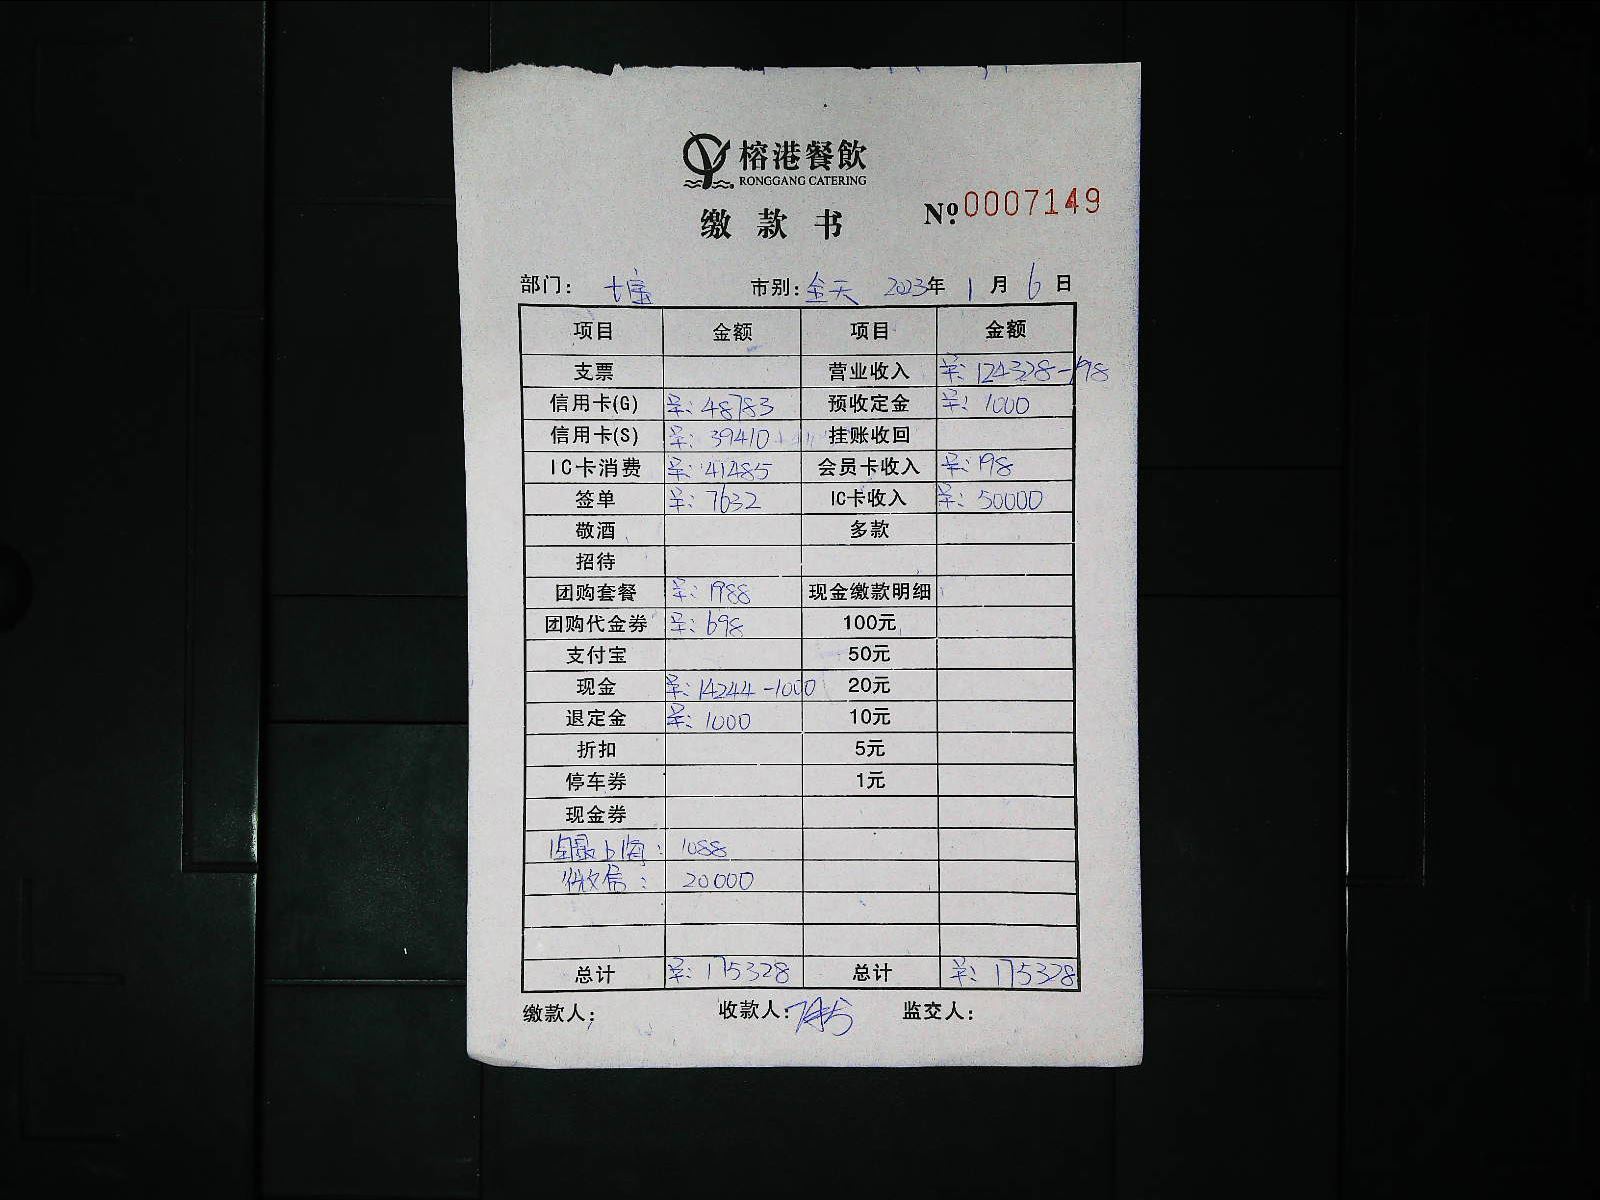 榕港餐飲
RONGGANG CATERING
缴款书
№ 0007149
部门: 七宝 市别: 全天 2023年 1月 6日
项目 金额 项目 金额
支票 营业收入 羊: 124328-198
信用卡(G) 羊: 48783 预收定金 羊: 1000
信用卡(S) 羊: 39410 挂账收回
IC卡消费 羊: 41485 会员卡收入 羊: 198
签单 羊: 7632 IC卡收入 羊: 50000
敬酒 多款
招待
团购套餐 羊: 1988 现金缴款明细
团购代金券 羊: 698 100元
支付宝 50元
现金 羊: 14244-1000 20元
退定金 羊: 1000 10元
折扣 5元
停车券 1元
现金券
上海: 1088
微信: 20000
总计 羊: 175328 总计 羊: 175328
缴款人: 收款人: 监交人: